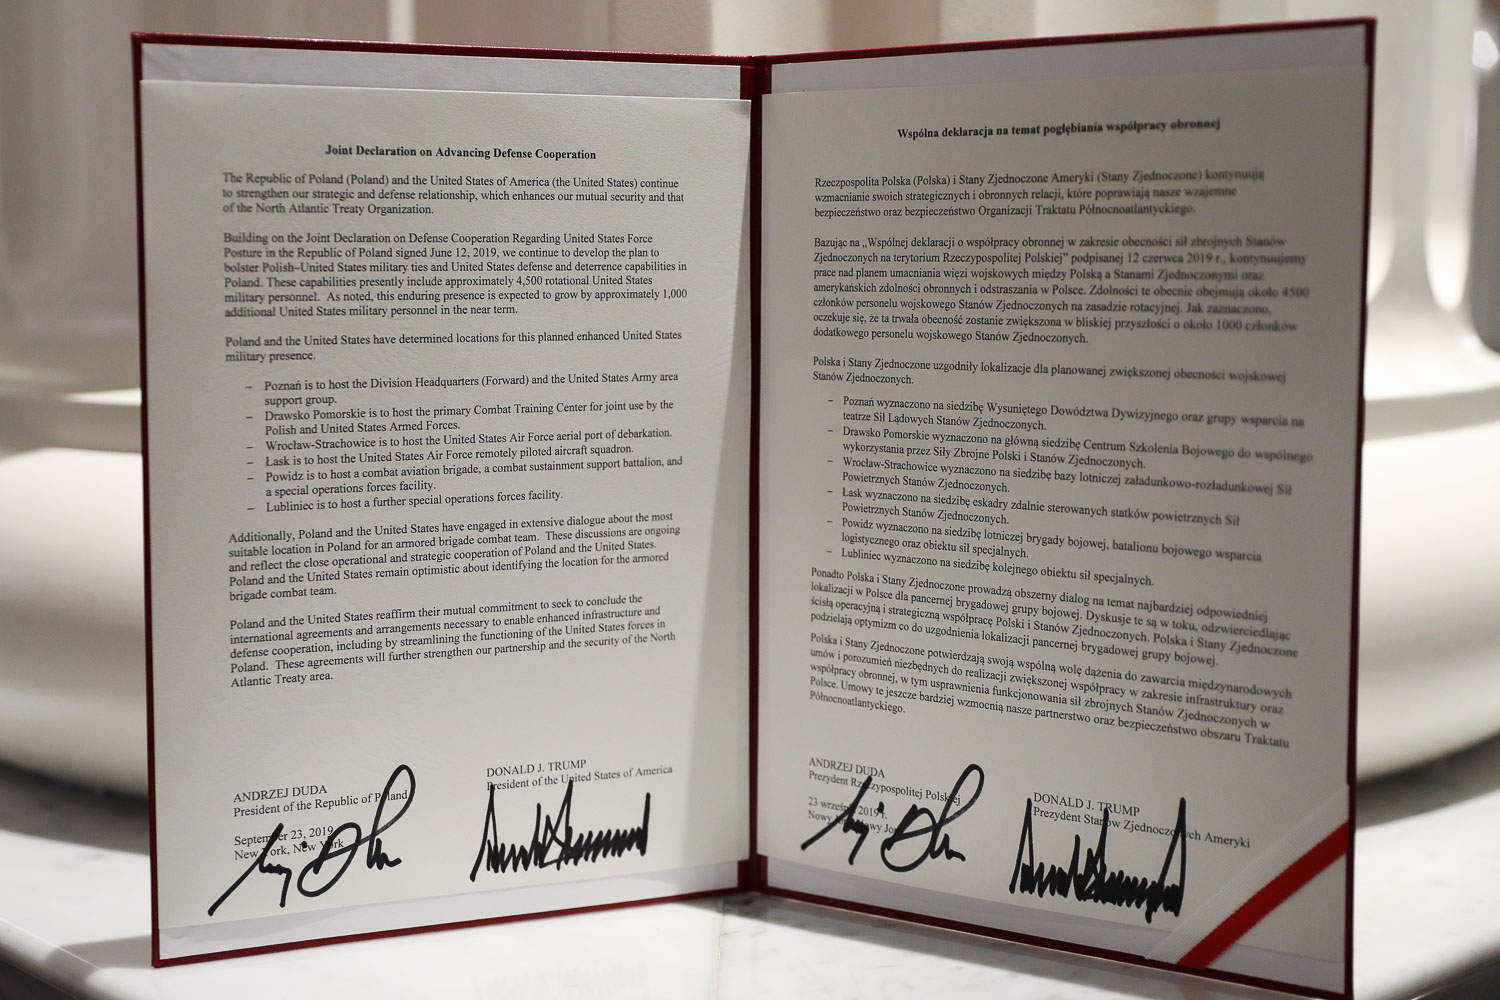 Joint Declaration on Advancing Defense Cooperation
The Republic of Poland (Poland) and the United States of America (the United States) continue
to strengthen our strategic and defense relationship, which enhances our mutual security and that
of the North Atlantic Treaty Organization.
Building on the Joint Declaration on Defense Cooperation Regarding United States Force
Posture in the Republic of Poland signed June 12, 2019, we continue to develop the plan to
bolster Polish–United States military ties and United States defense and deterrence capabilities in
Poland. These capabilities presently include approximately 4,500 rotational United States
military personnel. As noted, this enduring presence is expected to grow by approximately 1,000
additional United States military personnel in the near term.
Poland and the United States have determined locations for this planned enhanced United States
military presence.
– Poznań is to host the Division Headquarters (Forward) and the United States Army area
support group.
– Drawsko Pomorskie is to host the primary Combat Training Center for joint use by the
Polish and United States Armed Forces.
– Wrocław-Strachowice is to host the United States Air Force aerial port of debarkation.
– Łask is to host the United States Air Force remotely piloted aircraft squadron.
– Powidz is to host a combat aviation brigade, a combat sustainment support battalion, and
a special operations forces facility.
– Lubliniec is to host a further special operations forces facility.
Additionally, Poland and the United States have engaged in extensive dialogue about the most
suitable location in Poland for an armored brigade combat team. These discussions are ongoing
and reflect the close operational and strategic cooperation of Poland and the United States.
Poland and the United States remain optimistic about identifying the location for the armored
brigade combat team.
Poland and the United States reaffirm their mutual commitment to seek to conclude the
international agreements and arrangements necessary to enable enhanced infrastructure and
defense cooperation, including by streamlining the functioning of the United States forces in
Poland. These agreements will further strengthen our partnership and the security of the North
Atlantic Treaty area.
ANDRZEJ DUDA
President of the Republic of Poland
September 23, 2019
New York, New York
DONALD J. TRUMP
President of the United States of America
Wspólna deklaracja na temat pogłębiania współpracy obronnej
Rzeczpospolita Polska (Polska) i Stany Zjednoczone Ameryki (Stany Zjednoczone) kontynuują
wzmacnianie swoich strategicznych i obronnych relacji, które poprawiają nasze wzajemne
bezpieczeństwo oraz bezpieczeństwo Organizacji Traktatu Północnoatlantyckiego.
Bazując na „Wspólnej deklaracji o współpracy obronnej w zakresie obecności sił zbrojnych Stanów
Zjednoczonych na terytorium Rzeczypospolitej Polskiej” podpisanej 12 czerwca 2019 r., kontynuujemy
prace nad planem umacniania więzi wojskowych między Polską a Stanami Zjednoczonymi oraz
amerykańskich zdolności obronnych i odstraszania w Polsce. Zdolności te obecnie obejmują około 4500
członków personelu wojskowego Stanów Zjednoczonych na zasadzie rotacyjnej. Jak zaznaczono,
oczekuje się, że ta trwała obecność zostanie zwiększona w bliskiej przyszłości o około 1000 członków
dodatkowego personelu wojskowego Stanów Zjednoczonych.
Polska i Stany Zjednoczone uzgodniły lokalizacje dla planowanej zwiększonej obecności wojskowej
Stanów Zjednoczonych.
– Poznań wyznaczono na siedzibę Wysuniętego Dowództwa Dywizyjnego oraz grupy wsparcia na
teatrze Sił Lądowych Stanów Zjednoczonych.
– Drawsko Pomorskie wyznaczono na główną siedzibę Centrum Szkolenia Bojowego do wspólnego
wykorzystania przez Siły Zbrojne Polski i Stanów Zjednoczonych.
– Wrocław-Strachowice wyznaczono na siedzibę bazy lotniczej załadunkowo-rozładunkowej Sił
Powietrznych Stanów Zjednoczonych.
– Łask wyznaczono na siedzibę eskadry zdalnie sterowanych statków powietrznych Sił
Powietrznych Stanów Zjednoczonych.
– Powidz wyznaczono na siedzibę lotniczej brygady bojowej, batalionu bojowego wsparcia
logistycznego oraz obiektu sił specjalnych.
– Lubliniec wyznaczono na siedzibę kolejnego obiektu sił specjalnych.
Ponadto Polska i Stany Zjednoczone prowadzą obszerny dialog na temat najbardziej odpowiedniej
lokalizacji w Polsce dla pancernej brygadowej grupy bojowej. Dyskusje te są w toku, odzwierciedlając
ścisłą operacyjną i strategiczną współpracę Polski i Stanów Zjednoczonych. Polska i Stany Zjednoczone
podzielają optymizm co do uzgodnienia lokalizacji pancernej brygadowej grupy bojowej.
Polska i Stany Zjednoczone potwierdzają swoją wspólną wolę dążenia do zawarcia międzynarodowych
umów i porozumień niezbędnych do realizacji zwiększonej współpracy w zakresie infrastruktury oraz
współpracy obronnej, w tym usprawnienia funkcjonowania sił zbrojnych Stanów Zjednoczonych w
Polsce. Umowy te jeszcze bardziej wzmocnią nasze partnerstwo oraz bezpieczeństwo obszaru Traktatu
Północnoatlantyckiego.
ANDRZEJ DUDA
Prezydent Rzeczypospolitej Polskiej
23 września 2019 r.
Nowy Jork, Nowy Jork
DONALD J. TRUMP
Prezydent Stanów Zjednoczonych Ameryki